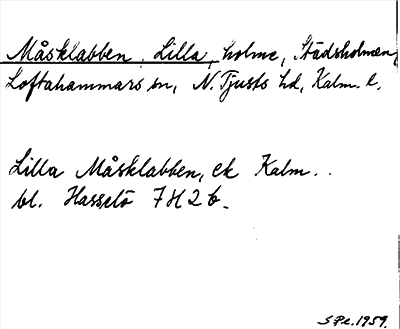 Måsklabben, Lilla, holme, Städsholmen,
Loftahammars sn, N. Tjusts hd, Kalm. l.
Lilla Måsklabben, ek Kalm..
bl. Hasselö 7H2b.
S Pe. 1959.